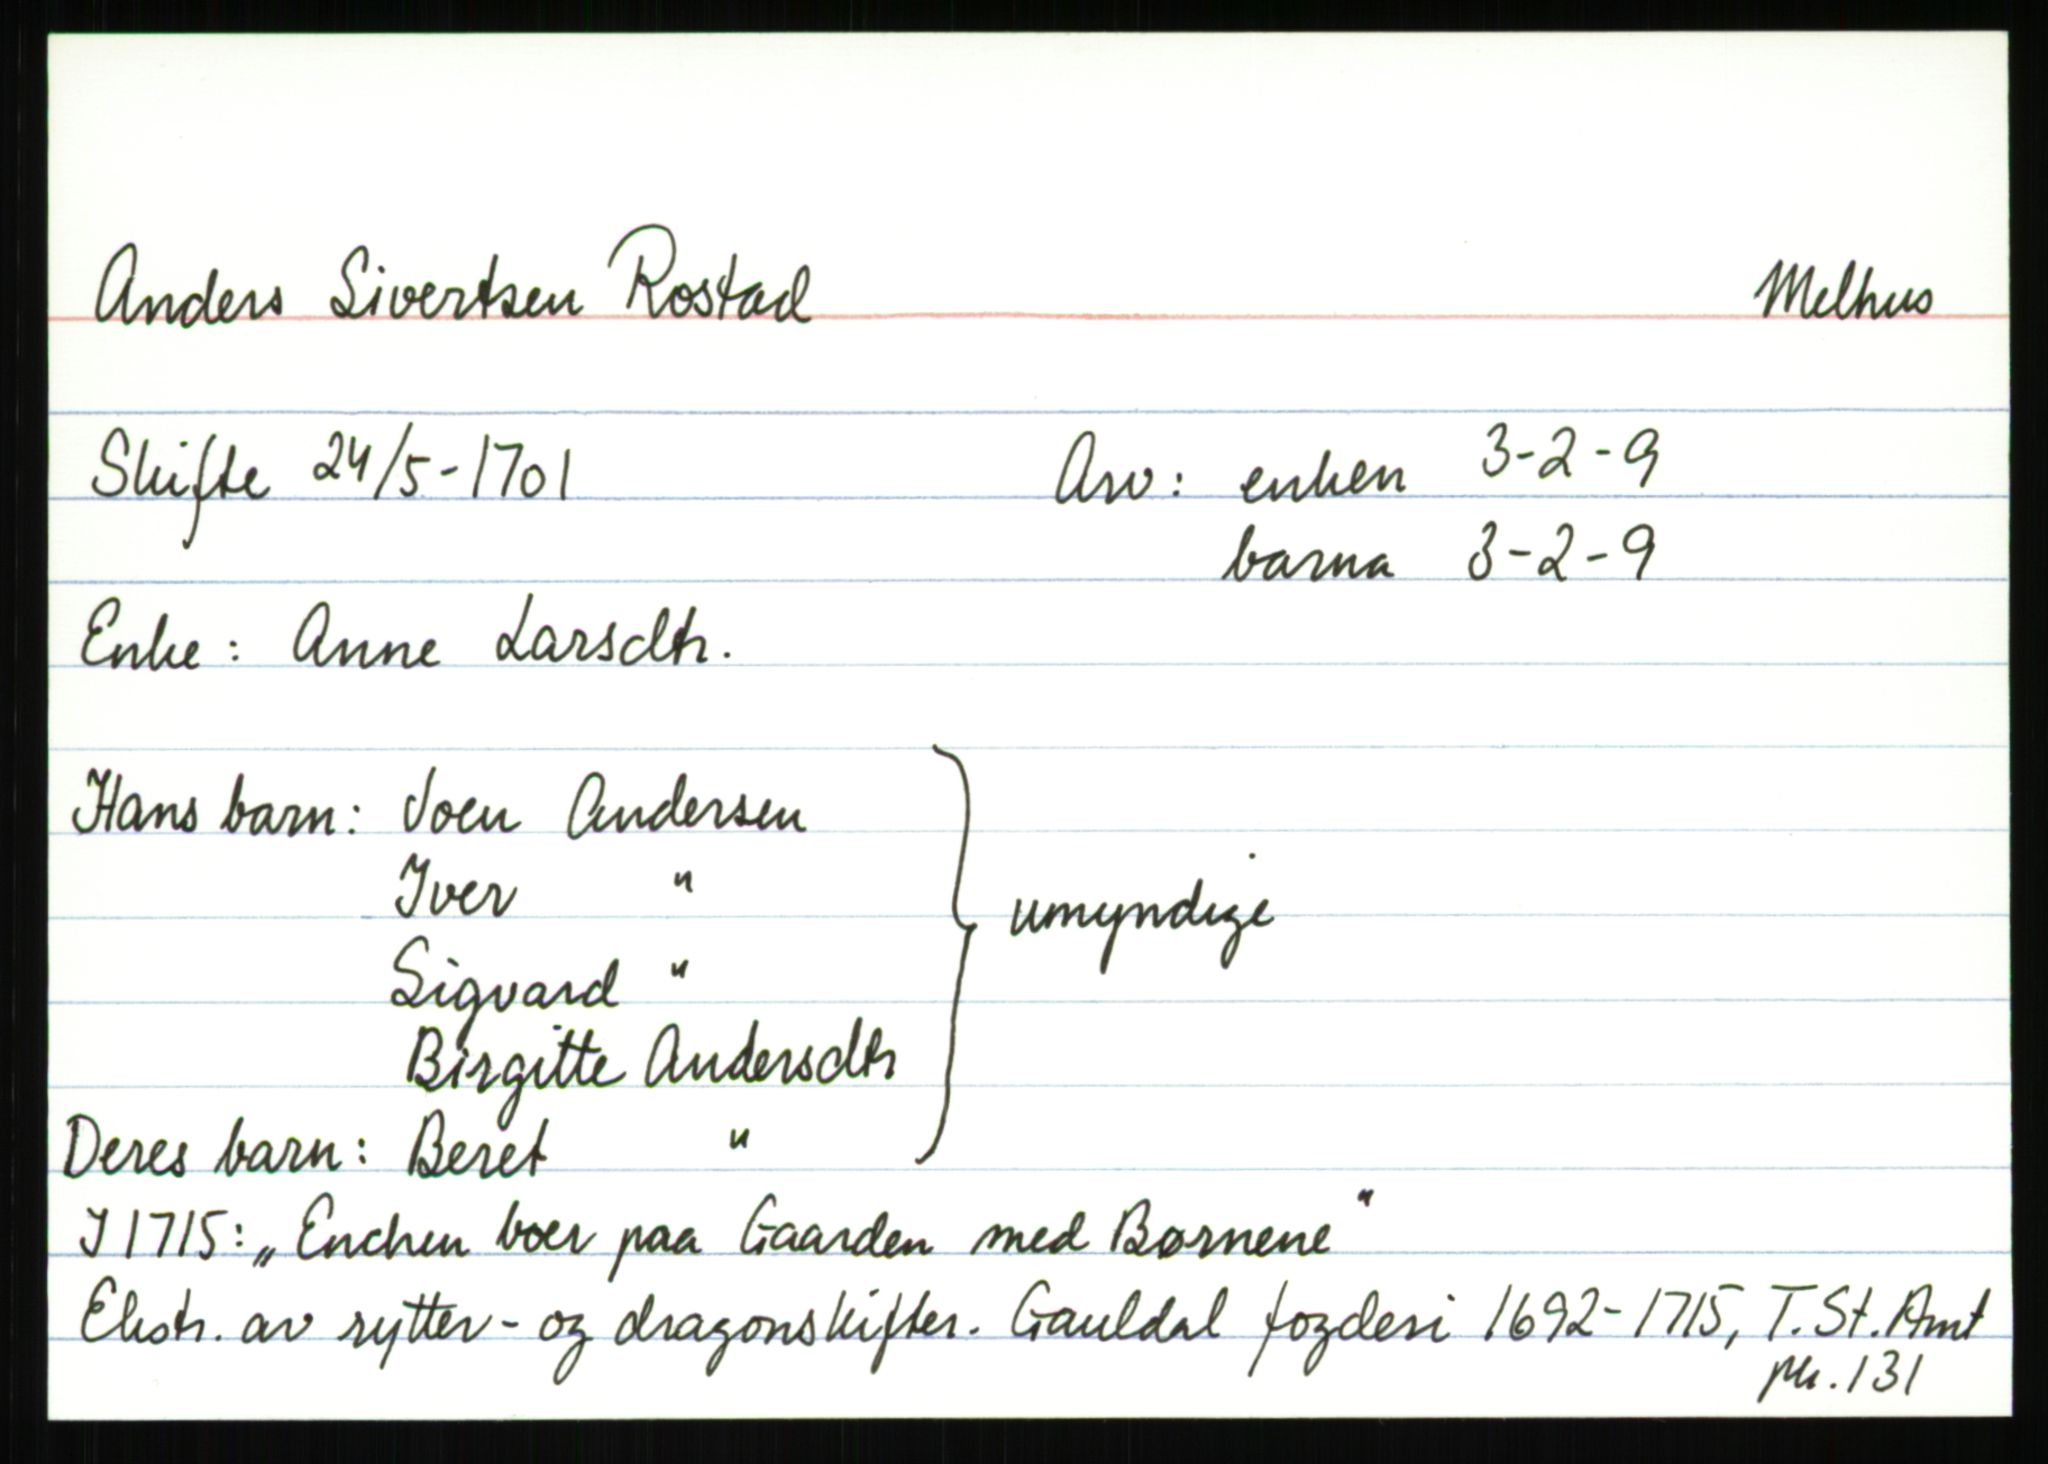 Anders Sivertsen Rostad Melhus
Skifte 24/5-1701 Arv: enken 3-2-9
barna 3-2-9
Enke: Anne Larsdtr.
Hans barn: Joen Andersen
Iver "
umyndige
Sigvard "
Birgitte Andersdtr
Deres barn: Beret "
I 1715: „Enchen boer paa Gaarden med Børnene"
Ekstr. av rytter- og dragonskifter. Gauldal fogderi 1692-1715, T. St. Amt
pk. 131